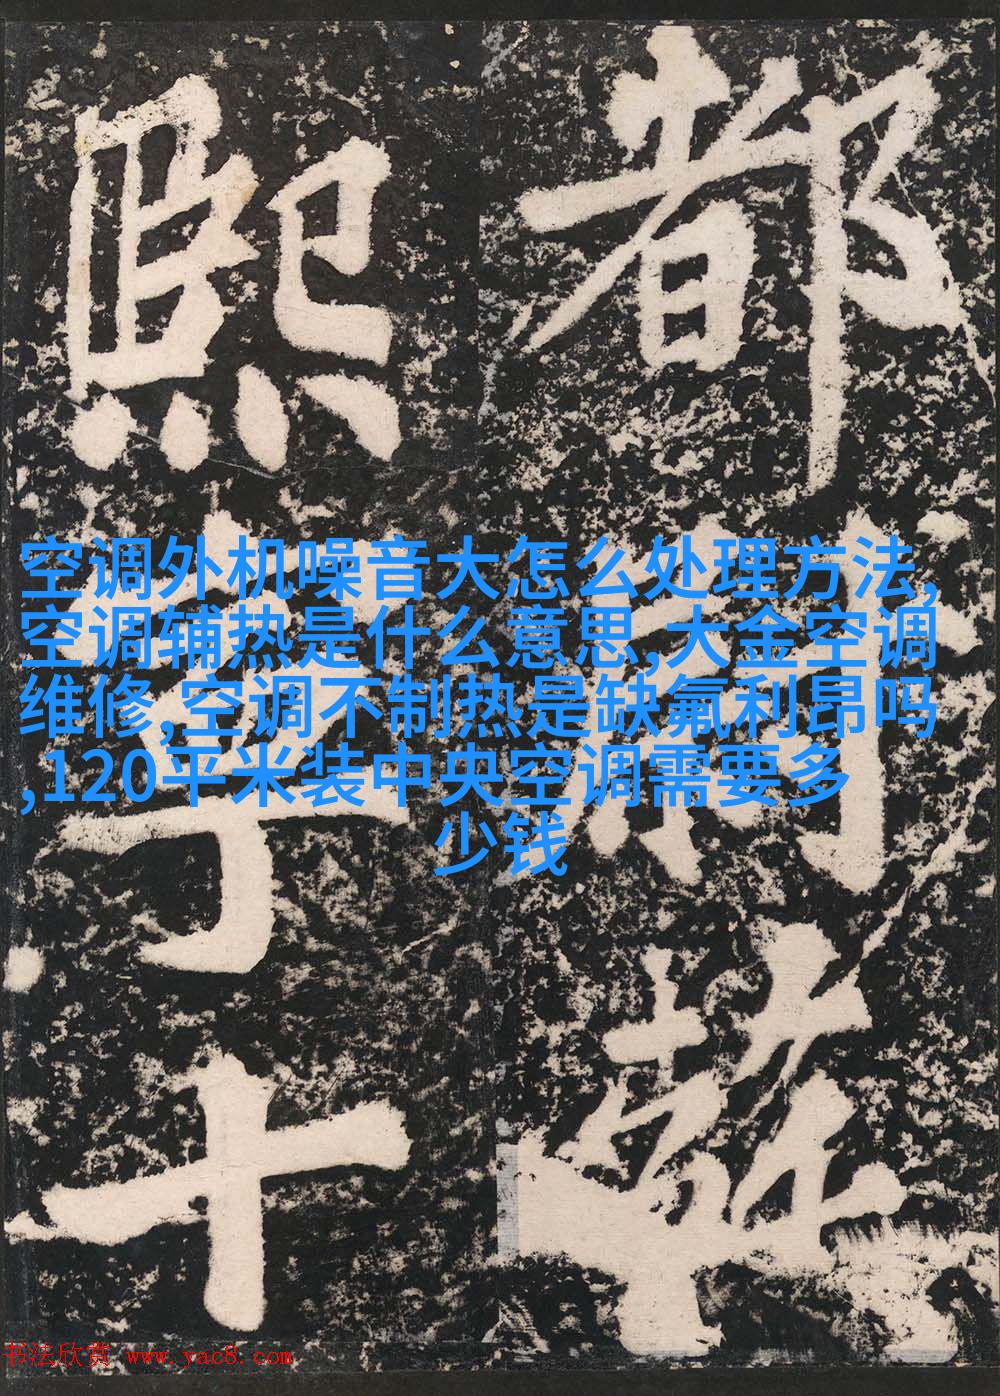 都
熙
空调外机噪音大怎么处理方法,
空调辅热是什么意思,大金空调
维修,空调不制热是缺氟利昂吗
,120平米装中央空调需要多
少钱
十
书法欣赏 www.yac8.com